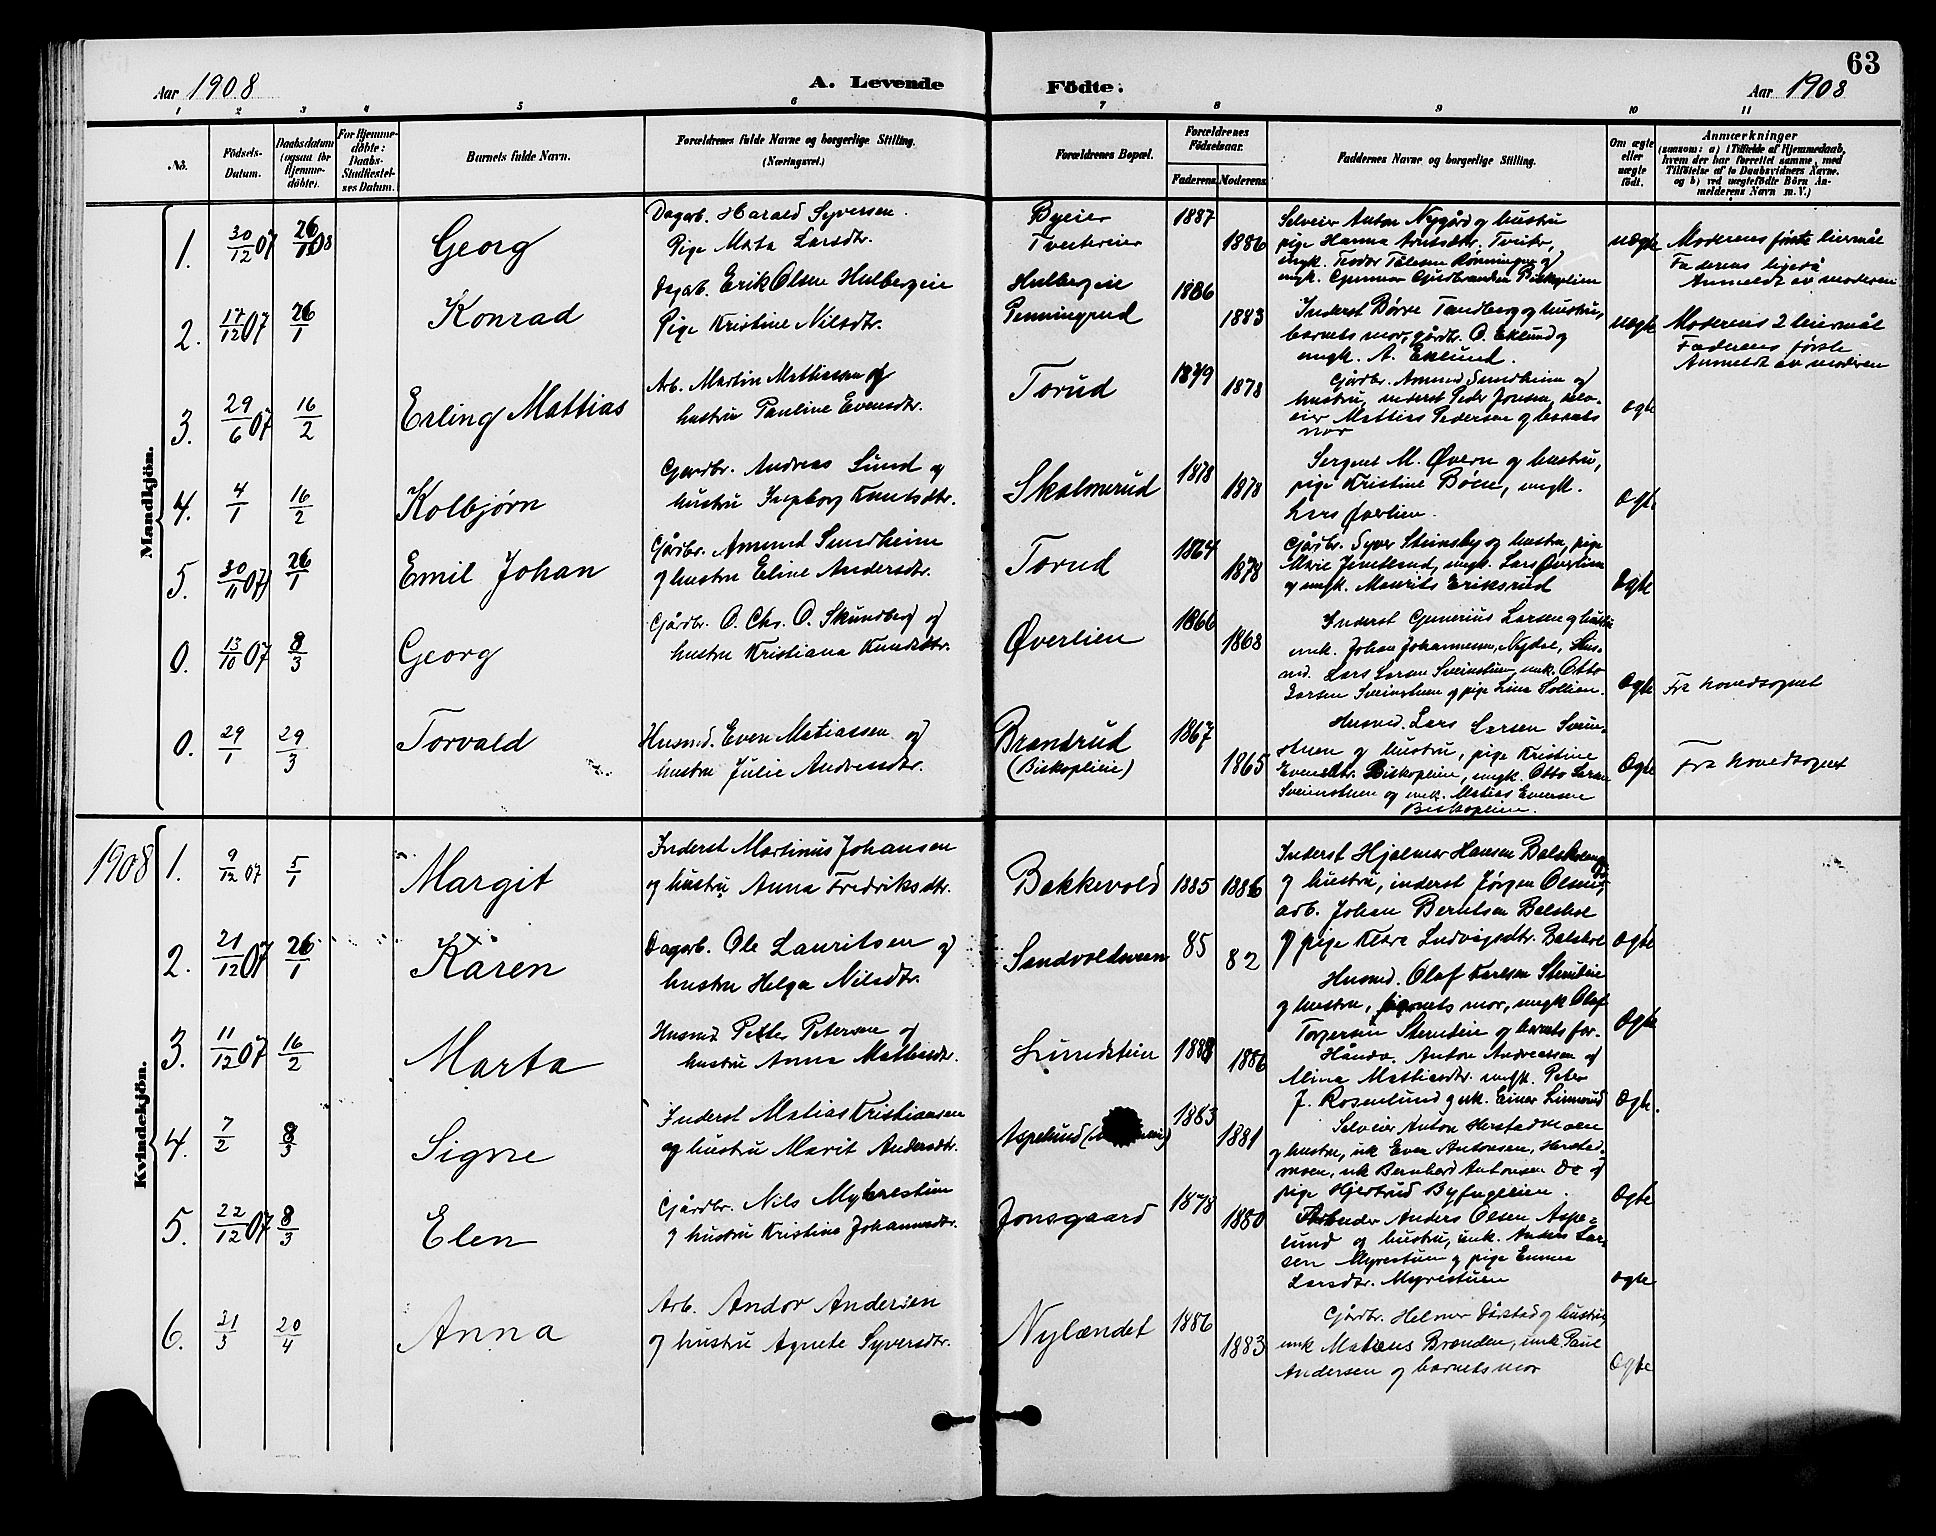 63
Aar 1908 A. Levende Födte. Aar 1908
1 2 3 4 5 6 7 8 9 10 11
No.
Födsels-Datum.
Daabsdatum (ogsaa for Hjemme-döbte).
For Hjemme-döbte: Daabs-Stadfæstel-ses Datum.
Barnets fulde Navn.
Forældrenes fulde Navne og borgerlige Stilling. (Næringsvei.)
Forældrenes Bopæl.
Forældrenes Födselsaar.
Faderens Moderens
Faddernes Navne og borgerlige Stilling.
Om ægte eller uægte födt.
Anmærkninger
(saasom: a) i Tilfælde af Hjemmedaab,
hvem der har forrettet samme, med
Tilföielse af to Daabsvidners Navne.
og b) ved uægtefödte Börn An-
melderens Navn m. V.)
Mandkjön.
1. 30/12 07 26/1 08 Georg
Dagarb. Harald Syversen.
Pige Marta Larsdtr.
Byeier
Tveitereier
1887 1886
Selveier Anton Nygård og hustru
pige Hanna
uægte
Moderens første leiermål
Faderens ligeså
Anmeldt av moderen
2. 17/12 07 26/1 Konrad
Dagarb. Erik Olsen Hulbergeie
Pige Kristine Nilsdtr.
Hulbergeie
Penningrud
1886 1883
Inderst Børre Tandberg og hustru,
barnets mor, gårdbr. O. Eklund og
ungk. A. Eklund.
uægte
Moderens 2 leiermål
Faderens første
Anmeldt av moderen
3. 29/6 07 16/2 Erling Mattias
Arb. Martin Mattiassen og
hustru Pauline Evensdtr.
Torud
1879 1878
Gårdbr. Amund Sundheim og
hustru, inderst Peder Jonsen, selv-
eier Mattias Pedersen og barnets
mor
Ægte
4. 4/1 16/2 Kolbjørn
Gårdbr. Andreas Lund og
hustru Ingeborg Knutsdtr.
Skalmerud
1878 1878
Sergent M. Øvern og hustru,
pige Kristine Bøen, ungk.
Lars Øverlien.
Ægte
5. 30/11 07 26/1 Emil Johan
Gårdbr. Amund Sundheim
og hustru Eline Andersdtr.
Torud
1864 1878
Gårdbr. Syver Steinsby og hustru, pige
Marie ungk. Lars Øverlien
og ungk. Maurits Eriksrud
Ægte
0. 13/10 07 8/3 Georg
Gårdbr. O. Chr. O. Skundberg og
hustru Kristiana Knudsdtr.
Øverlien
1866 1868
Inderst Gunerius Larsen og hustru
unk. Johan Johannesen, Hus-
md. Lars Larsen Sveinstuen, unk. Otto
Larsen Sveinstuen og pige Lina Sollien.
Ægte
Fra hovedsognet
0. 29/1 29/3 Torvald
Husmd. Even Matiassen og
hustru Julie Andreasdtr.
Brandrud
(Biskoplien)
1867 1865
Husmd. Lars Larsen Svein-
stuen og hustru, pige Kristine
Evensdtr. Biskoplien, ungk. Otto Larsen
Sveinstuen og unk. Matias Evensen
Biskoplien.
Ægte
Fra hovedsognet
1908
Kvindekjön.
1. 9/12 07 5/1 Margit
Inderst Martinus Johansen
og hustru Anna Fredriksdtr.
Bakkevold
1885 1886
Inderst Hjalmar Hansen
og hustru, inderst Jørgen Olsen,
arb. Johan Berntsen Balskoe
og pige Ludvigsdtr. Balskoe
Ægte
2. 21/12 07 26/1 Karen
Dagarb. Ole Lauritsen og
hustru Helga Nilsdtr.
Sandvoldmoen
85 82
Husmd. Olaf Karlsen
og hustru, barnets mor, ungk Olaf
Torgersen og barnets far
Ægte
3. 11/12 07 16/2 Marta
Husmd Petter Petersen og
hustru Anna Mathisdtr.
Lundstein
1888 1886
Håndv. Anton Andreassen og
Alina Mattiasdtr. ungk. Peter
J. Rosenlund og unk. Einar
Ægte.
4. 7/2 8/3 Signe
Inderst Matias Kristiansen
og hustru Marit Andersdtr.
Aspelund
1883 1881
Selveier Anton Herstadmoen
og hustru, unk Even Antonsen, Herstad-
moen, unk Bernhard Antonsen Do og
pige Hjertrud Byfuglien.
Ægte
5. 22/12 07 8/3 Elen
Gårdbr. Nils Myhrestuen
og hustru Kristine Johannesdtr.
Jonsgaard
1878 1880
Arbeider Anders Olsen Aspe-
lund og hustru, unk. Anders Lar-
sen Myrestuen og pige Emma
Larsdtr. Myrestuen
Ægte
6. 31/3 20/4 Anna
Arb. Andor Andersen
og hustru Agnete Syversdtr.
Nylændet
1886 1883
Gårdbr. Helmer og hustru,
unk Mataeus Brænden, unk Paul
Andersen og barnets mor
Ægte